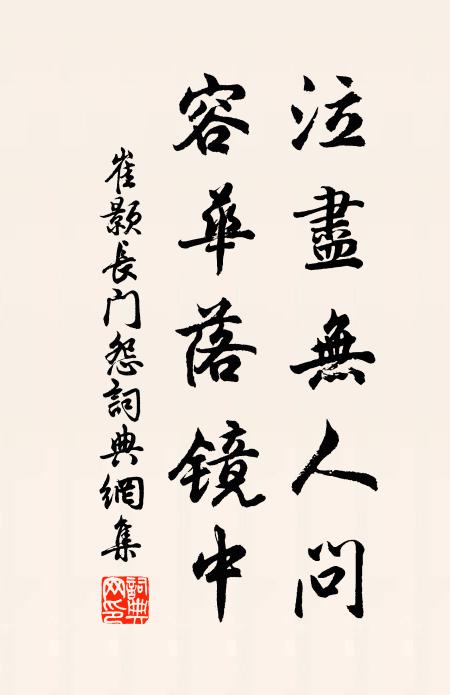 泣盡無人問
容華落鏡中
崔顥長门怨詞典網集
詞典
网印